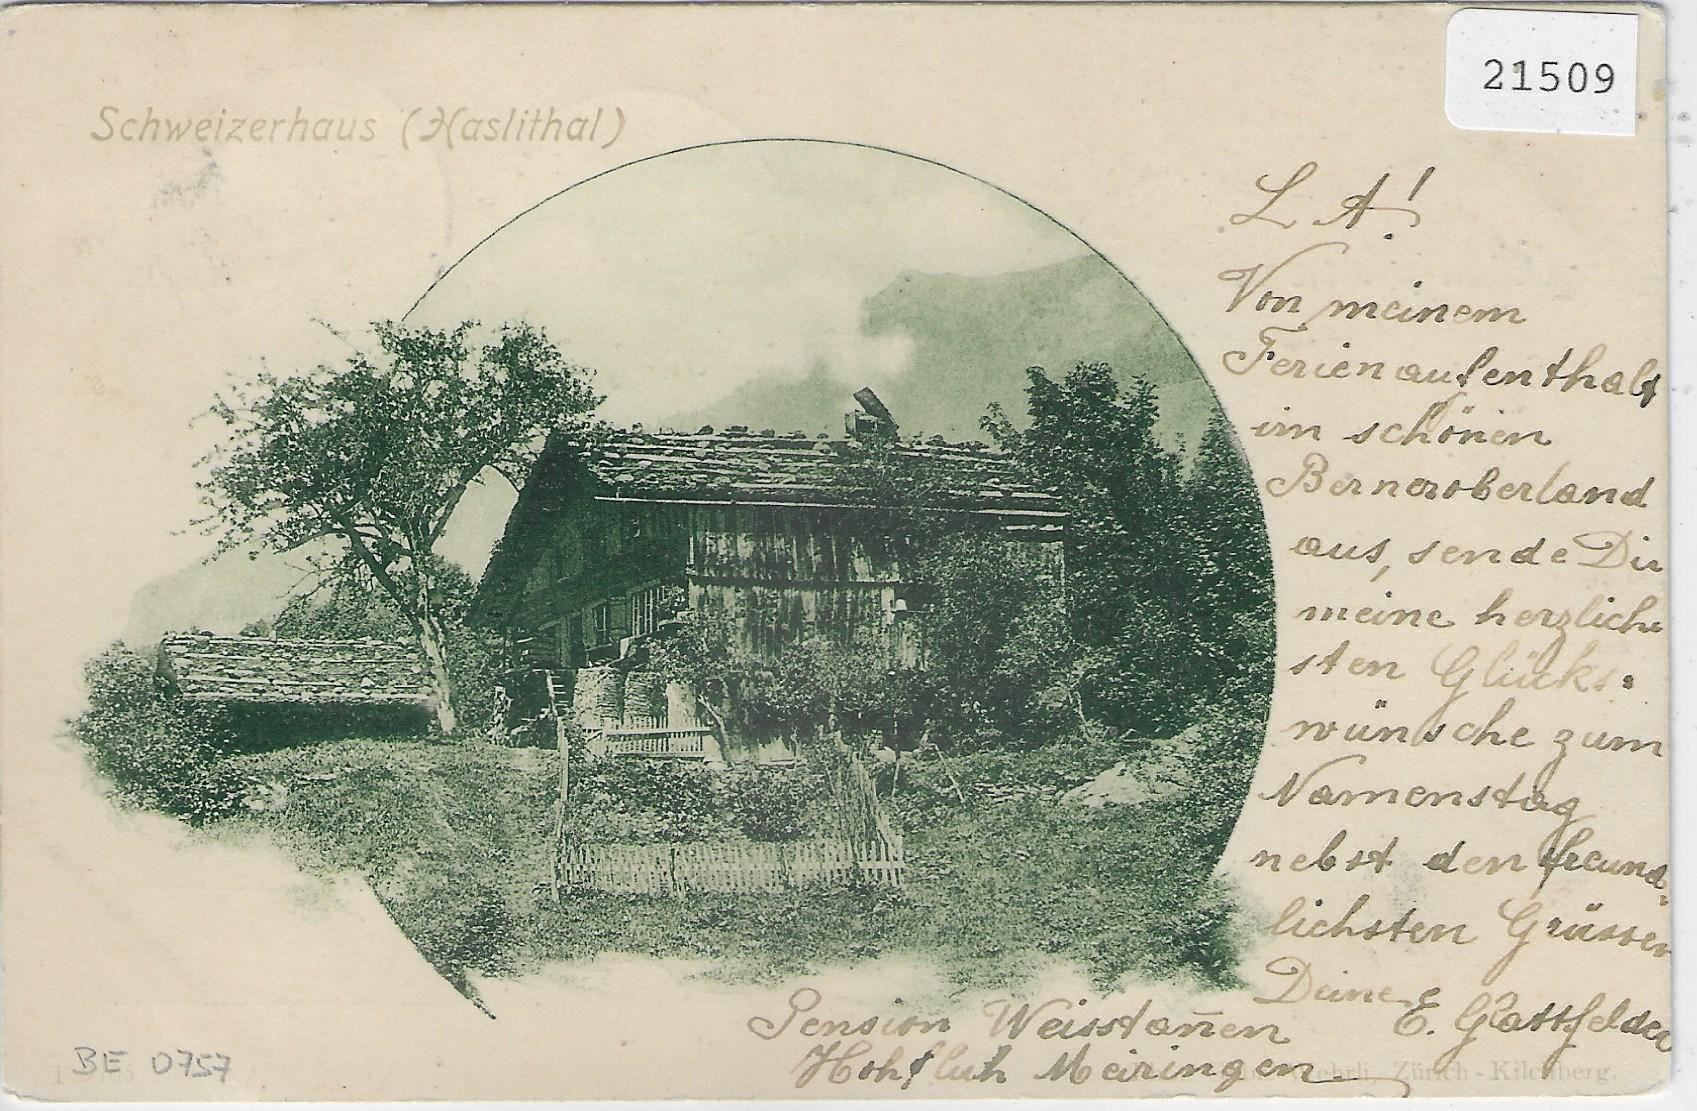 21509
Schweizerhaus (Haslithal)
L A!
Von meinem
Ferienaufenthalt
im schönen
Berneroberland
aus, sende Dir
meine herzliche
sten Glücks:
wünsche zum
Namenstag
nebst den freund
lichsten Grüssen
Deine E. Glattfelder
Pension Weisstan̄en
Hohfluh Meiringen.
BE 0757
Wehrli, Zürich - Kilchberg.